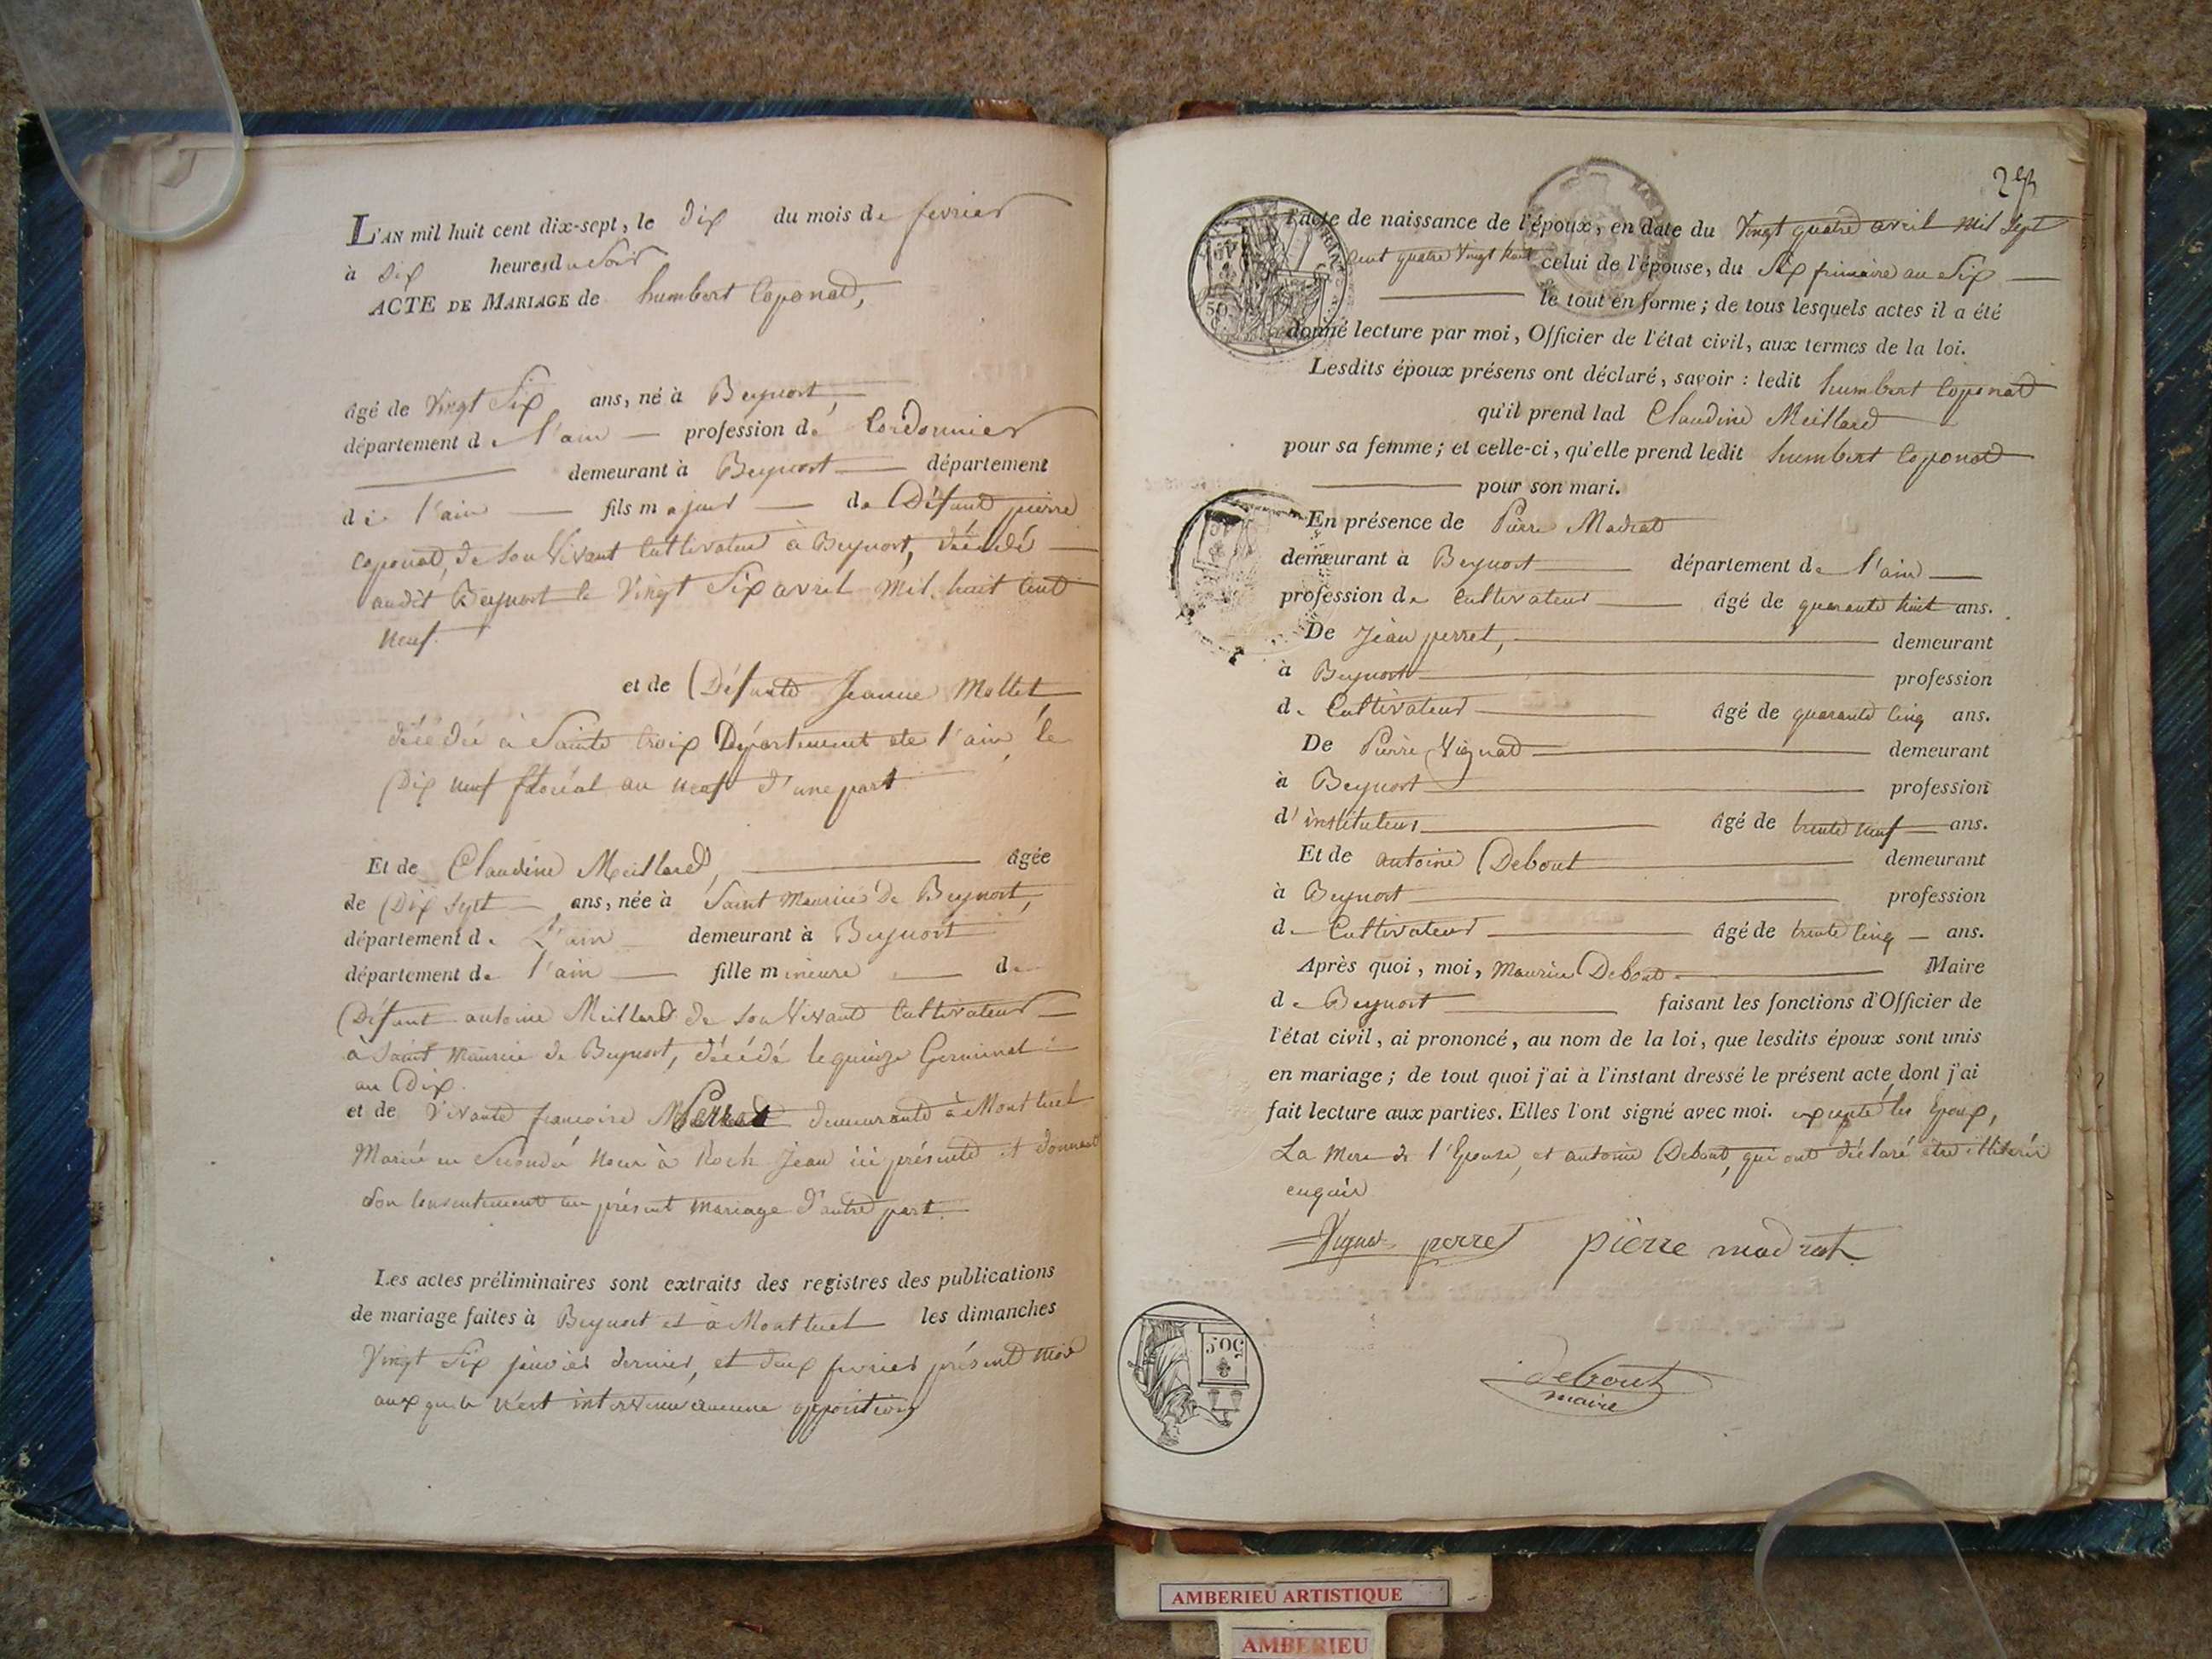 L'AN mil huit cent dix-sept, le dix du mois de fevrier
à Six heures du Soir
ACTE DE MARIAGE de humbert Coponat,
âgé de Vingt Six ans, né à Beynost,
département de l'ain profession de Cordonnier
demeurant à Beynost département
de l'ain fils majeur de Défunt pierre
Coponat, de Son Vivant Cultivateur à Beynost, décédé
audit Beynost le Vingt Six avril Mil huit Cent
Neuf.
et de Défunte Jeanne Mollet
décédée à Sainte Croix Département de l'ain, le
Dix neuf floréal an neuf d'une part
Et de Claudine Meillard, âgée
de Dix Sept ans, née à Saint Maurice De Beynost,
département de L'ain demeurant à Beynost
département de l'ain fille mineure de
Défunt antoine Meillard de Son Vivant Cultivateur
à Saint Maurice de Beynost, décédé le quinze Germinal
an Dix.
et de Vivante francoise demeurante à Montluel
Mariée en Seconde Noce à Roch Jean ici présente et donnant
Son Consentement au présent Mariage d'autre part.
Les actes préliminaires sont extraits des registres des publications
de mariage faites à Beynost et à Montluel les dimanches
Vingt Six janvier dernier, et deux fevrier présent mois
auxquels n'est intervenu aucune opposition
l'acte de naissance de l'époux, en date du Vingt quatre avril Mil Sept
Cent quatre Vingt huit celui de l'épouse, du Six frimaire an Six
le tout en forme ; de tous lesquels actes il a été
donné lecture par moi, Officier de l'état civil, aux termes de la loi.
Lesdits époux présens ont déclaré, savoir : ledit humbert Coponat
qu'il prend lad Claudine Meillard
pour sa femme ; et celle-ci, qu'elle prend ledit humbert Coponat
pour son mari.
En présence de Pierre Madrat
demeurant à Beynost département de l'ain
profession de Cultivateur âgé de quarante huit ans.
De Jean perret, demeurant
à Beynost profession
de Cultivateur âgé de quarante Cinq ans.
De Pierre Vignat demeurant
à Beynost profession
d'instituteur âgé de trente neuf ans.
Et de antoine Debout demeurant
à Beynost profession
de Cultivateur âgé de trente Cinq ans.
Après quoi, moi, Maurice Debout Maire
de Beynost faisant les fonctions d'Officier de
l'état civil, ai prononcé, au nom de la loi, que lesdits époux sont unis
en mariage ; de tout quoi j'ai à l'instant dressé le présent acte dont j'ai
fait lecture aux parties. Elles l'ont signé avec moi. excepté les Epoux,
La Mere de l'Epouse, et antoine Debout, qui ont déclaré être illitérés
enquis
Vignat perret pierre madrat
debout
maire
50 C
AMBERIEU ARTISTIQUE
AMBERIEU